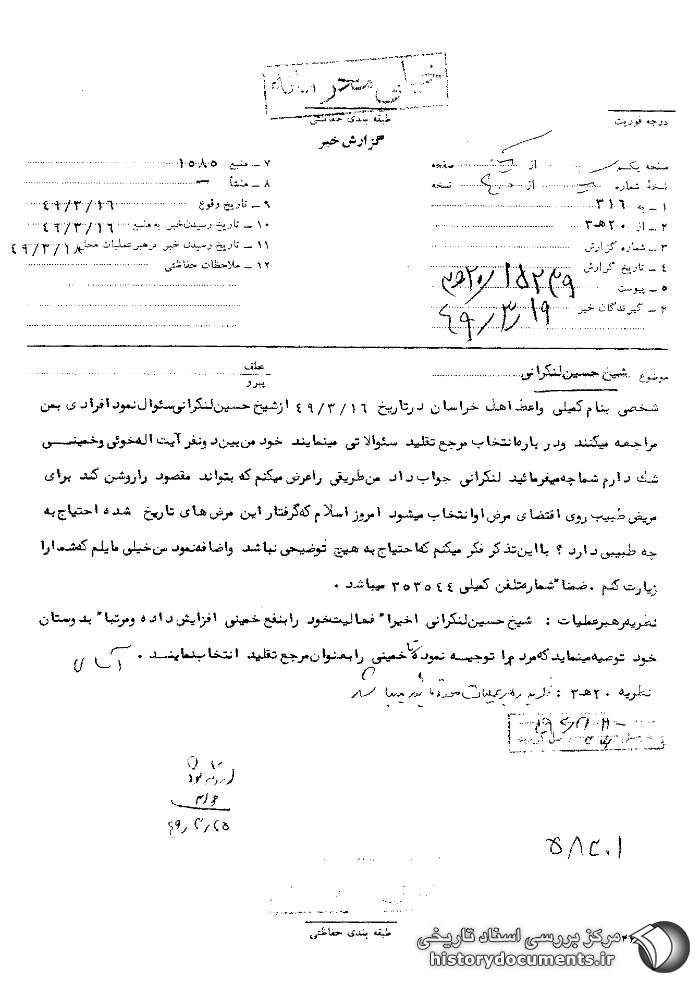 خیلی محرمانه
طبقه بندی حفاظتی
درجه فوریت
گزارش خبر
صفحه یکم از صفحه
نسخهٔ شماره از نسخه
۱ ـ به ۳۱۶
۲ ـ از ۲۰هـ۳
۳ ـ شماره گزارش
۴ ـ تاریخ گزارش
۵ ـ پیوست
۶ ـ گیرندگان خبر
۱۵۲۳۹/۲۰هـ۳
۴۹/۳/۱۹
۷ ـ منبع ۱۵۸۵
۸ ـ منشأ ـ
۹ ـ تاریخ وقوع ۴۹/۳/۱۶
۱۰ ـ تاریخ رسیدن خبر به منبع ۴۹/۳/۱۶
۱۱ ـ تاریخ رسیدن خبر به رهبر عملیات محل ۴۹/۳/۱۸
۱۲ ـ ملاحظات حفاظتی
موضوع شیخ حسین لنکرانی
عطف
پیرو
شخصی بنام کمیلی واعظ اهل خراسان در تاریخ ۴۹/۳/۱۶ از شیخ حسین لنکرانی سئوال نمود افرادی بمن
مراجعه میکنند ودر باره انتخاب مرجع تقلید سئوالاتی مینمایند خود من بین دونفر آیت اله خوئی وخمینی
شک دارم شما چه میفرمائید لنکرانی جواب داد من طریقی را عرض میکنم که بتواند مقصود را روشن کند برای
مریض طبیب روی اقتضای مرض او انتخاب میشود امروز اسلام که گرفتار این مرض های تاریخ شده احتیاج به
چه طبیبی دارد ؟ با این تذکر فکر میکنم که احتیاج به هیچ توضیحی نباشد واضافه نمود من خیلی مایلم که شما را
زیارت کنم . ضمنا" شماره تلفن کمیلی ۳۵۳۵۴۴ میباشد .
نظریه رهبر عملیات : شیخ حسین لنکرانی اخیرا" فعالیت خود را بنفع خمینی افزایش داده ومرتبا" بدوستان
خود توصیه مینماید که مردم را توجیه نموده تا خمینی را بعنوان مرجع تقلید انتخاب نمایند .
نظریه ۲۰هـ۳ : نظریه رهبر عملیات مورد تأیید میباشد
۳۱۶
۴۹/۳/۲۵
۵۸۲۰۱
طبقه بندی حفاظتی
مرکز بررسی اسناد تاریخی
historydocuments.ir